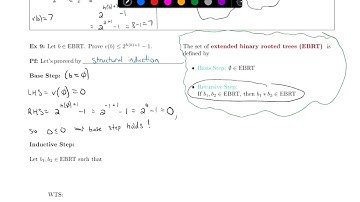 v(b) = 7
2^{h(b)+1} - 1
= 2^{2+1} - 1 = 8 - 1 = 7
Ex 9: Let b ∈ EBRT. Prove v(b) ≤ 2^{h(b)+1} − 1.
Pf: Let's proceed by structural induction
Base Step: (b = ∅)
LHS = v(∅) = 0
RHS = 2^{h(∅)+1} - 1 = 2^{-1+1} - 1 = 2^0 - 1 = 0,
so 0 ≤ 0 ⟹ base step holds!
Inductive Step:
Let b₁, b₂ ∈ EBRT such that
WTS:
The set of extended binary rooted trees (EBRT) is
defined by
• Basis Step: ∅ ∈ EBRT
• Recursive Step:
If b₁, b₂ ∈ EBRT, then b₁ * b₂ ∈ EBRT